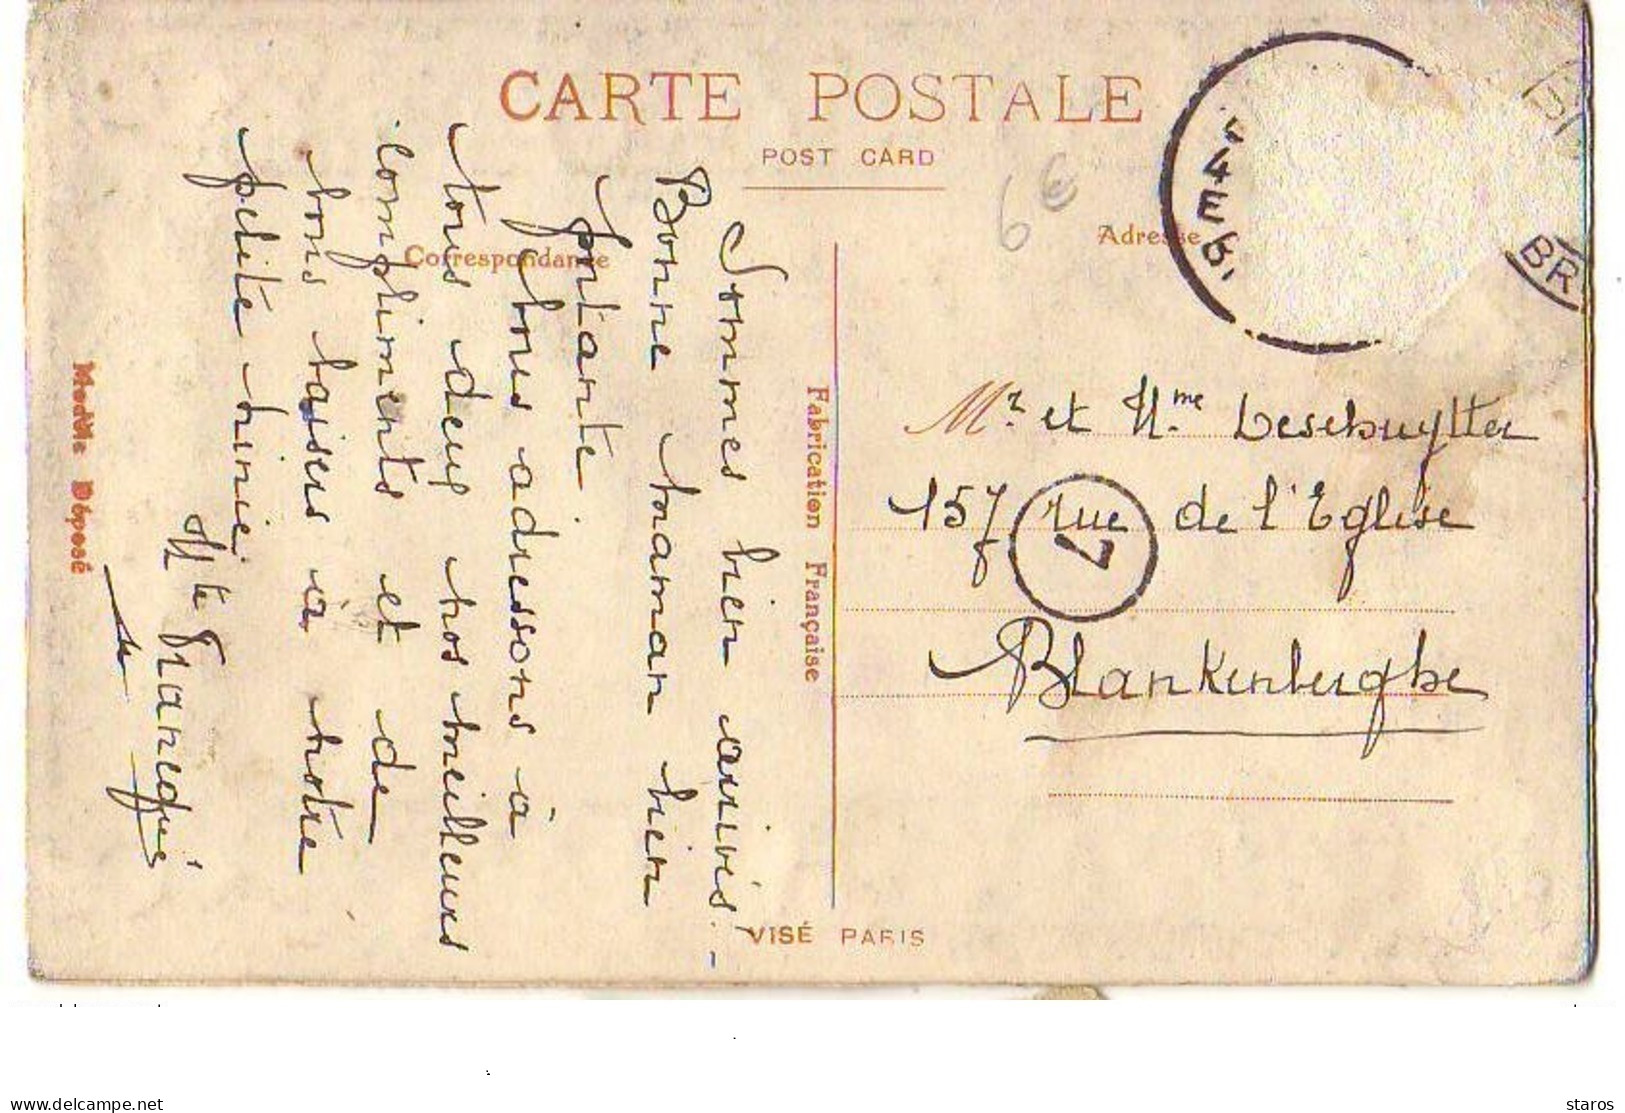 CARTE POSTALE
POST CARD
Correspondance
Adresse
6€
BR
Sommes bien arrivés. –
Bonne maman bien
portante
Nous adressons à
tous deux nos meilleurs
compliments et de
bons baisers à notre
petite ninie
Mte Franequé
Mr et Mme Desebuytter
157 rue de l'Eglise
7
Blankenberghe
Fabrication Française
Modèle Déposé
VISÉ PARIS
www.delcampe.net
staros